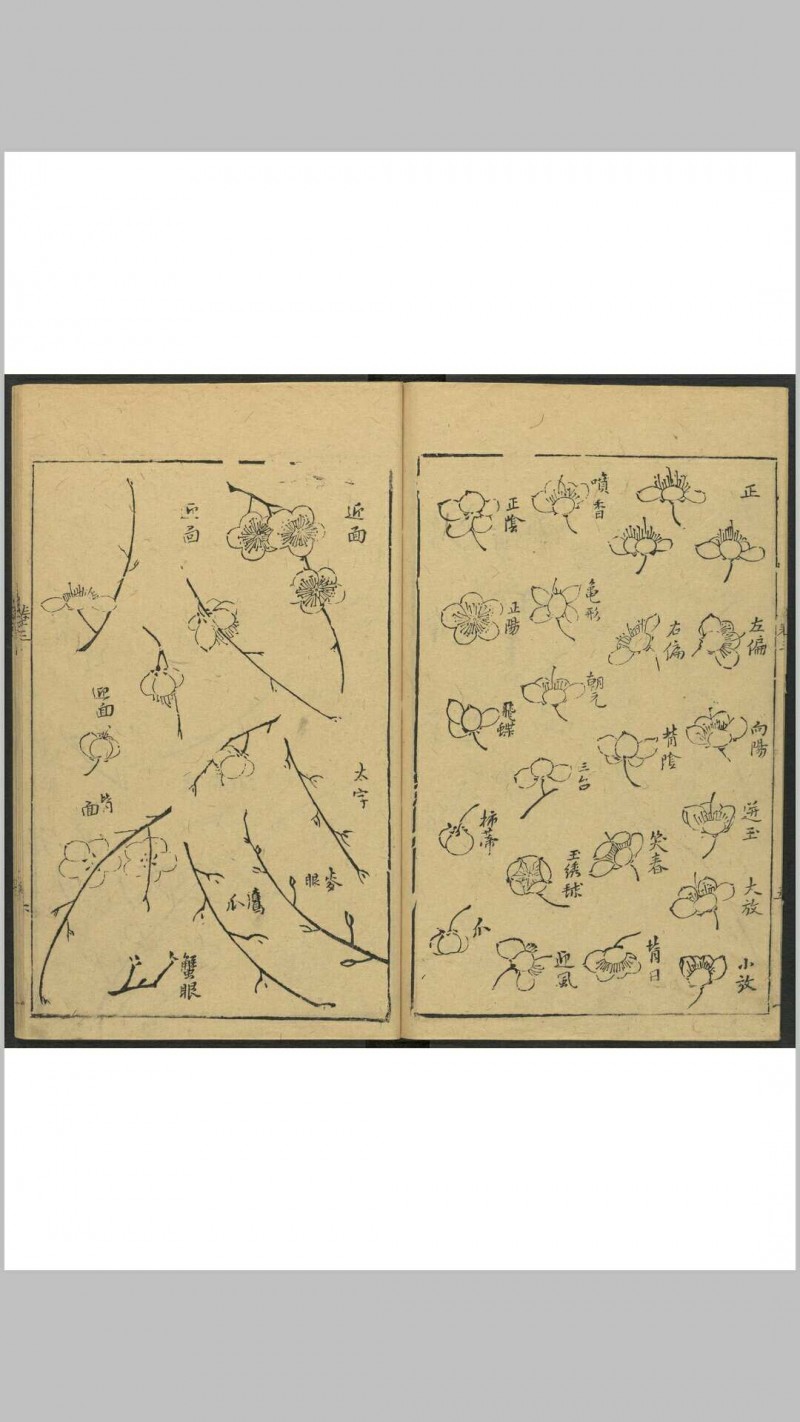 正
左偏
向陽
迸玉
大放
小放
右偏
背陰
笑春
背日
噴香
龜形
朝元
三台
玉綉毬
迎風
正陰
正陽
飛蝶
柿蒂
爪
近面
太字
麥眼
迎面
鷹爪
蟹眼
迎面
背面